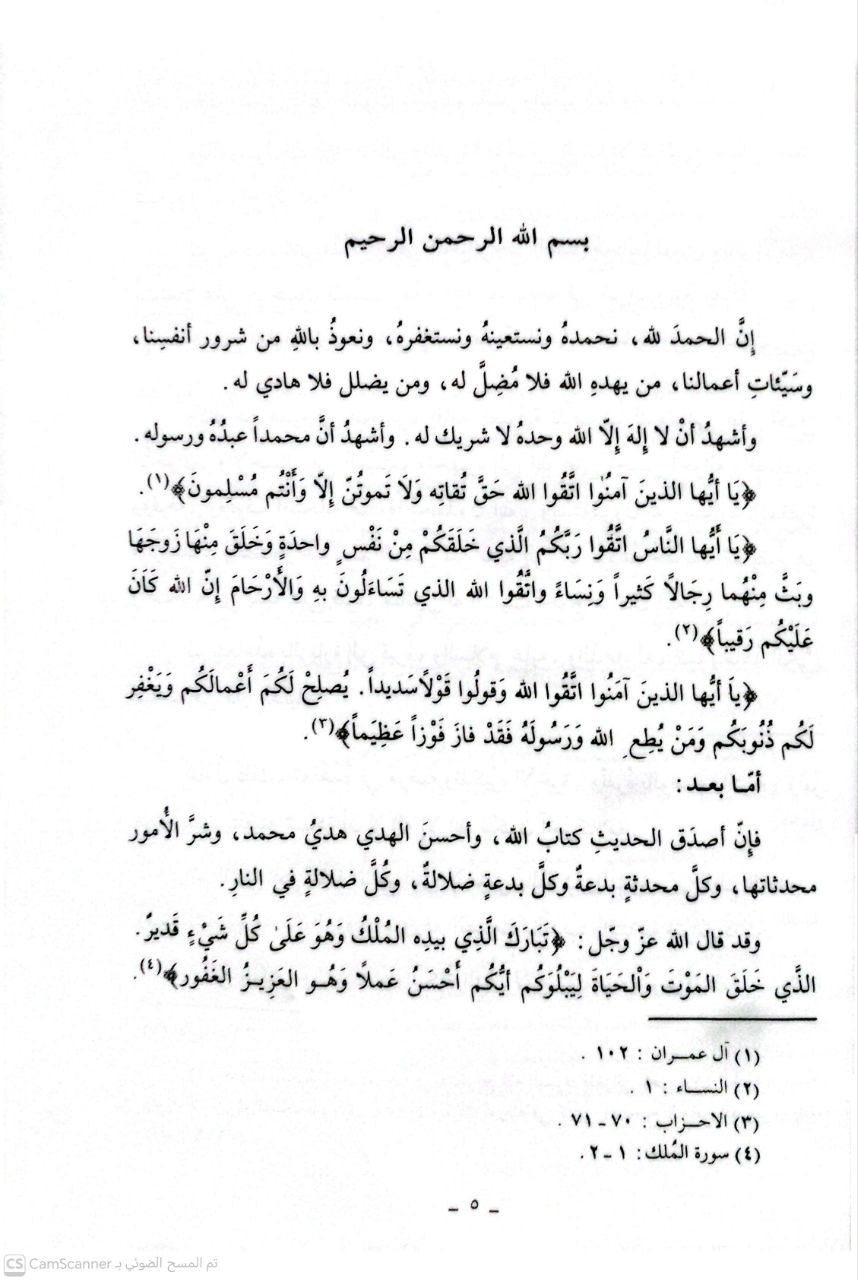 بسم الله الرحمن الرحيم
إنَّ الحمدَ لله، نحمدهُ ونستعينهُ ونستغفرهُ، ونعوذُ باللهِ من شرور أنفسِنا،
وسَيّئاتِ أعمالنا، من يهدهِ الله فلا مُضِلَّ له، ومن يضلل فلا هادي له.
وأشهدُ أنْ لا إلهَ إلّا الله وحدهُ لا شريك له. وأشهدُ أنَّ محمداً عبدُهُ ورسوله.
﴿يَا أيُّها الذينَ آمنُوا اتَّقُوا الله حَقَّ تُقاتِه وَلَا تَموتُنّ إلّا وَأَنْتُم مُسْلِمونَ﴾(١).
﴿يَا أَيُّها النَّاسُ اتَّقُوا رَبَّكُمُ الَّذي خَلَقَكُمْ مِنْ نَفْسٍ واحدَةٍ وَخَلَقَ مِنْهَا زَوجَهَا
وبَثَّ مِنْهُما رِجَالاً كَثيراً وَنِسَاءً واتَّقُوا الله الذي تَسَاءَلُونَ بهِ وَالأَرْحَامَ إنّ الله كَاَنَ
عَلَيْكُم رَقيباً﴾(٢).
﴿ياَ أيُّها الذينَ آمَنُوا اتَّقُوا الله وَقولُوا قَوْلاً سَديداً. يُصلِحْ لَكُمَ أَعْمالَكُم وَيَغْفِر
لَكُم ذُنُوبَكُم وَمَنْ يُطِعِ الله وَرَسُولَهُ فَقَدْ فازَ فَوْزاً عَظِيَماً﴾(٣).
أمّـا بعـد:
فإنّ أصدَق الحديثِ كتابُ الله، وأحسنَ الهدي هديُ محمد، وشرَّ الأُمور
محدثاتها، وكلَّ محدثةٍ بدعةٌ وكلَّ بدعةٍ ضلالةٌ، وكُلَّ ضلالةٍ في النارِ.
وقد قال الله عزّ وجّل: ﴿تَبَارَكَ الَّذِي بيدِه المُلْكُ وَهُوَ عَلَىٰ كُلِّ شَيْءٍ قَديرٌ.
الذَّي خَلَقَ المَوْتَ وَاْلحَيَاةَ لِيَبْلُوَكُم أيُّكُم أَحْسَنُ عَملاً وَهُـو العَزِيـزُ الغَفُور﴾(٤).
(١) آل عمـران : ١٠٢ .
(٢) النسـاء : ١ .
(٣) الاحـزاب : ٧٠ ـ ٧١ .
(٤) سورة المُلك: ١ ـ ٢ .
ـ ٥ ـ
CS CamScanner تم المسح الضوئي بـ